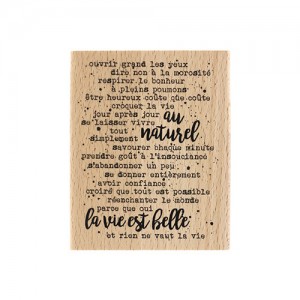 ouvrir grand les yeux
dire non à la morosité
respirer le bonheur
à pleins poumons
être heureux coûte que coûte
croquer la vie
jour après jour au
se laisser vivre naturel
tout
simplement
savourer chaque minute
prendre goût à l'insouciance
s'abandonner un peu
se donner entièrement
avoir confiance
croire que tout est possible
réenchanter le monde
parce que oui
la vie est belle
et rien ne vaut la vie